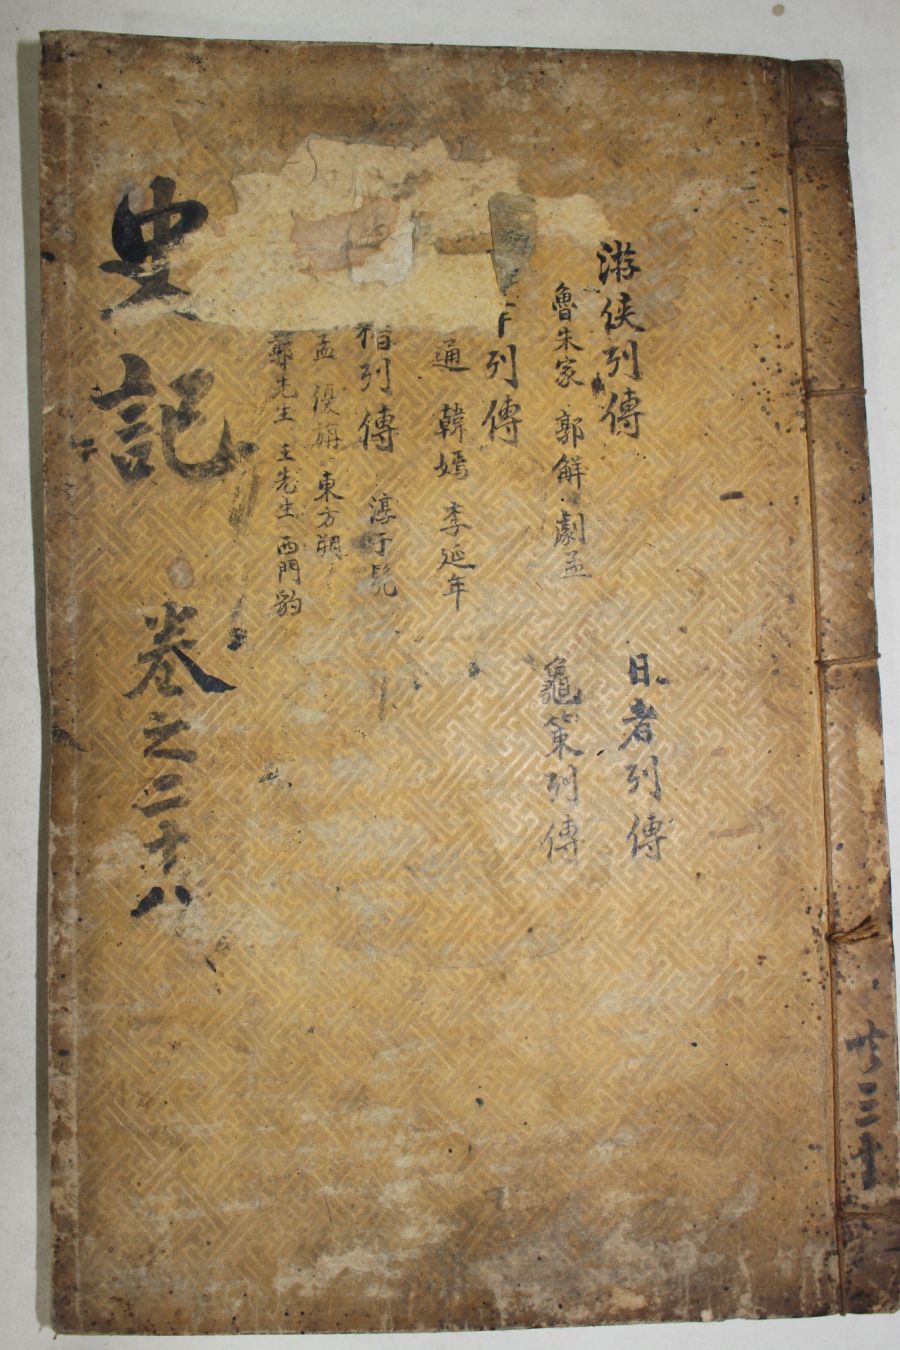 游俠列傳
魯朱家 郭解 劇孟
列傳
通 韓嫣 李延年
稽列傳 淳于髡
孟 優旃 東方朔
郭先生 王先生 西門豹
日者列傳
龜策列傳
史記 卷之二十八
共三十